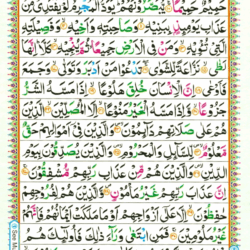 حَمِيمٌ حَمِيمًا يُبَصَّرُونَهُمْ يَوَدُّ الْمُجْرِمُ لَوْ يَفْتَدِي مِنْ
عَذَابِ يَوْمِئِذٍ بِبَنِيهِ وَصَاحِبَتِهِ وَأَخِيهِ وَفَصِيلَتِهِ
الَّتِي تُؤْوِيهِ وَمَنْ فِي الْأَرْضِ جَمِيعًا ثُمَّ يُنْجِيهِ كَلَّا إِنَّهَا
لَظَى نَزَّاعَةً لِلشَّوَى تَدْعُو مَنْ أَدْبَرَ وَتَوَلَّى وَجَمَعَ
فَأَوْعَى إِنَّ الْإِنْسَانَ خُلِقَ هَلُوعًا إِذَا مَسَّهُ الشَّرُّ
جَزُوعًا وَإِذَا مَسَّهُ الْخَيْرُ مَنُوعًا إِلَّا الْمُصَلِّينَ الَّذِينَ
هُمْ عَلَى صَلَاتِهِمْ دَائِمُونَ وَالَّذِينَ فِي أَمْوَالِهِمْ حَقٌّ
مَعْلُومٌ لِلسَّائِلِ وَالْمَحْرُومِ وَالَّذِينَ يُصَدِّقُونَ بِيَوْمِ
الدِّينِ وَالَّذِينَ هُمْ مِنْ عَذَابِ رَبِّهِمْ مُشْفِقُونَ
إِنَّ عَذَابَ رَبِّهِمْ غَيْرُ مَأْمُونٍ وَالَّذِينَ هُمْ لِفُرُوجِهِمْ
حَافِظُونَ إِلَّا عَلَى أَزْوَاجِهِمْ أَوْ مَا مَلَكَتْ أَيْمَانُهُمْ فَإِنَّهُمْ
غَيْرُ مَلُومِينَ فَمَنِ ابْتَغَى وَرَاءَ ذَلِكَ فَأُولَئِكَ هُمُ